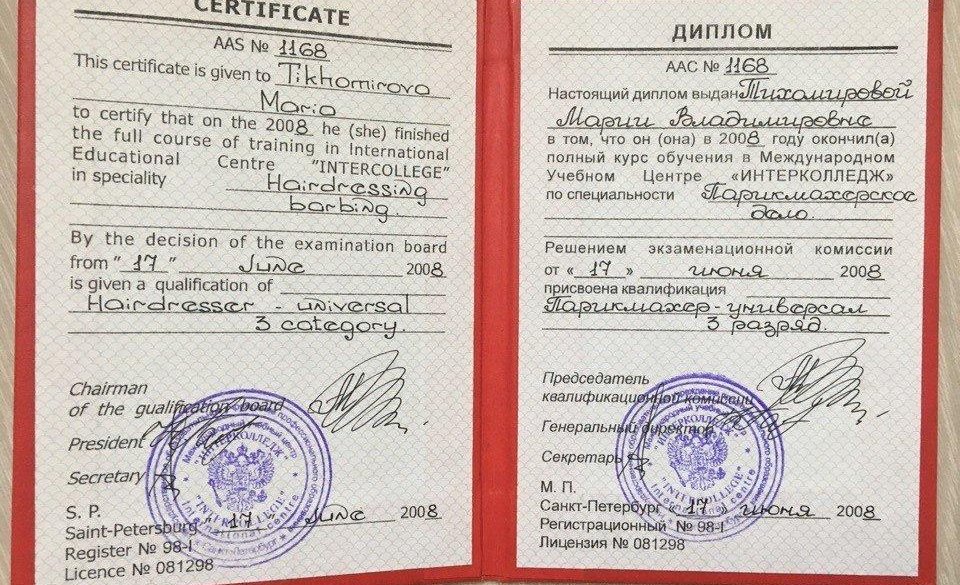 CERTIFICATE
AAS № 1168
This certificate is given to Tikhomirova
Maria
to certify that on the 2008 he (she) finished
the full course of training in International
Educational Centre "INTERCOLLEGE"
in speciality Hairdressing
barbing.
By the decision of the examination board
from "17" June 2008
is given a qualification of
Hairdresser - universal
3 category.
Chairman
of the qualification board
President
Secretary
S. P.
Saint-Petersburg "17" June 2008
Register № 98-I
Licence № 081298
"ИНТЕРКОЛЛЕДЖ"
"INTERCOLLEGE"
International centre
Санкт-Петербург
ДИПЛОМ
ААС № 1168
Настоящий диплом выдан Тихомировой
Марии Владимировне
в том, что он (она) в 2008 году окончил(а)
полный курс обучения в Международном
Учебном Центре «ИНТЕРКОЛЛЕДЖ»
по специальности Парикмахерское
дело.
Решением экзаменационной комиссии
от «17» июня 2008
присвоена квалификация
Парикмахер-универсал
3 разряд.
Председатель
квалификационной комиссии
Генеральный директор
Секретарь
М. П.
Санкт-Петербург "17" июня 2008
Регистрационный № 98-I
Лицензия № 081298
"ИНТЕРКОЛЛЕДЖ"
"INTERCOLLEGE"
International centre